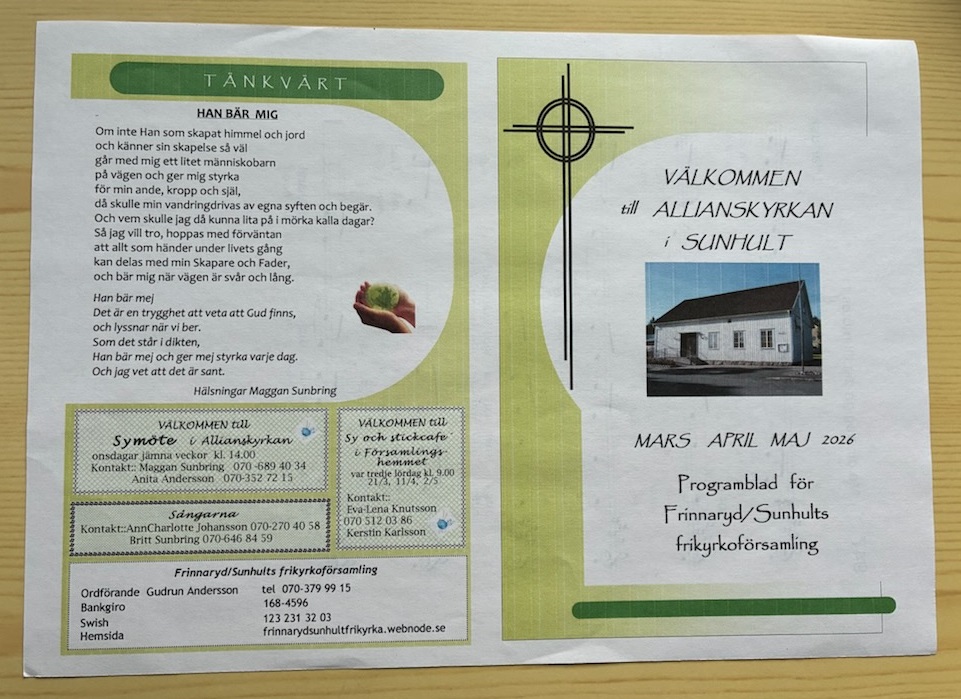 TÄNKVÄRT
HAN BÄR MIG
Om inte Han som skapat himmel och jord
och känner sin skapelse så väl
går med mig ett litet människobarn
på vägen och ger mig styrka
för min ande, kropp och själ,
då skulle min vandringdrivas av egna syften och begär.
Och vem skulle jag då kunna lita på i mörka kalla dagar?
Så jag vill tro, hoppas med förväntan
att allt som händer under livets gång
kan delas med min Skapare och Fader,
och bär mig när vägen är svår och lång.
Han bär mej
Det är en trygghet att veta att Gud finns,
och lyssnar när vi ber.
Som det står i dikten,
Han bär mej och ger mej styrka varje dag.
Och jag vet att det är sant.
Hälsningar Maggan Sunbring
VÄLKOMMEN till
Symöte i Allianskyrkan
onsdagar jämna veckor kl. 14.00
Kontakt:: Maggan Sunbring 070 -689 40 34
Anita Andersson 070-352 72 15
Sångarna
Kontakt::AnnCharlotte Johansson 070-270 40 58
Britt Sunbring 070-646 84 59
VÄLKOMMEN till
Sy och stickcafe´
i Församlings-
hemmet
var tredje lördag kl. 9.00
21/3, 11/4, 2/5
Kontakt::
Eva-Lena Knutsson
070 512 03 86
Kerstin Karlsson
Frinnaryd/Sunhults frikyrkoförsamling
Ordförande Gudrun Andersson tel 070-379 99 15
Bankgiro 168-4596
Swish 123 231 32 03
Hemsida frinnarydsunhultfrikyrka.webnode.se
VÄLKOMMEN
till ALLIANSKYRKAN
i SUNHULT
MARS APRIL MAJ 2026
Programblad för
Frinnaryd/Sunhults
frikyrkoförsamling